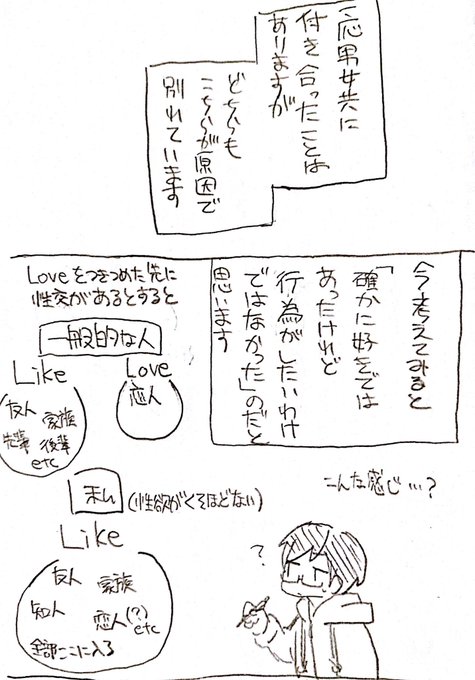 一応男女共に
付き合ったことは
ありますが
どちらも
こちらが原因で
別れています
今考えてみると
「確かに好きでは
あったけれど
行為がしたいわけ
ではなかった」のだと
思います
Loveをつきつめた先に
性交があるとすると
一般的な人
Like
友人 家族
先輩 後輩
etc
Love
恋人
私 (性欲がくそほどない)
Like
友人 家族
知人 恋人(?)
etc
全部ここに入る
こんな感じ…?
?